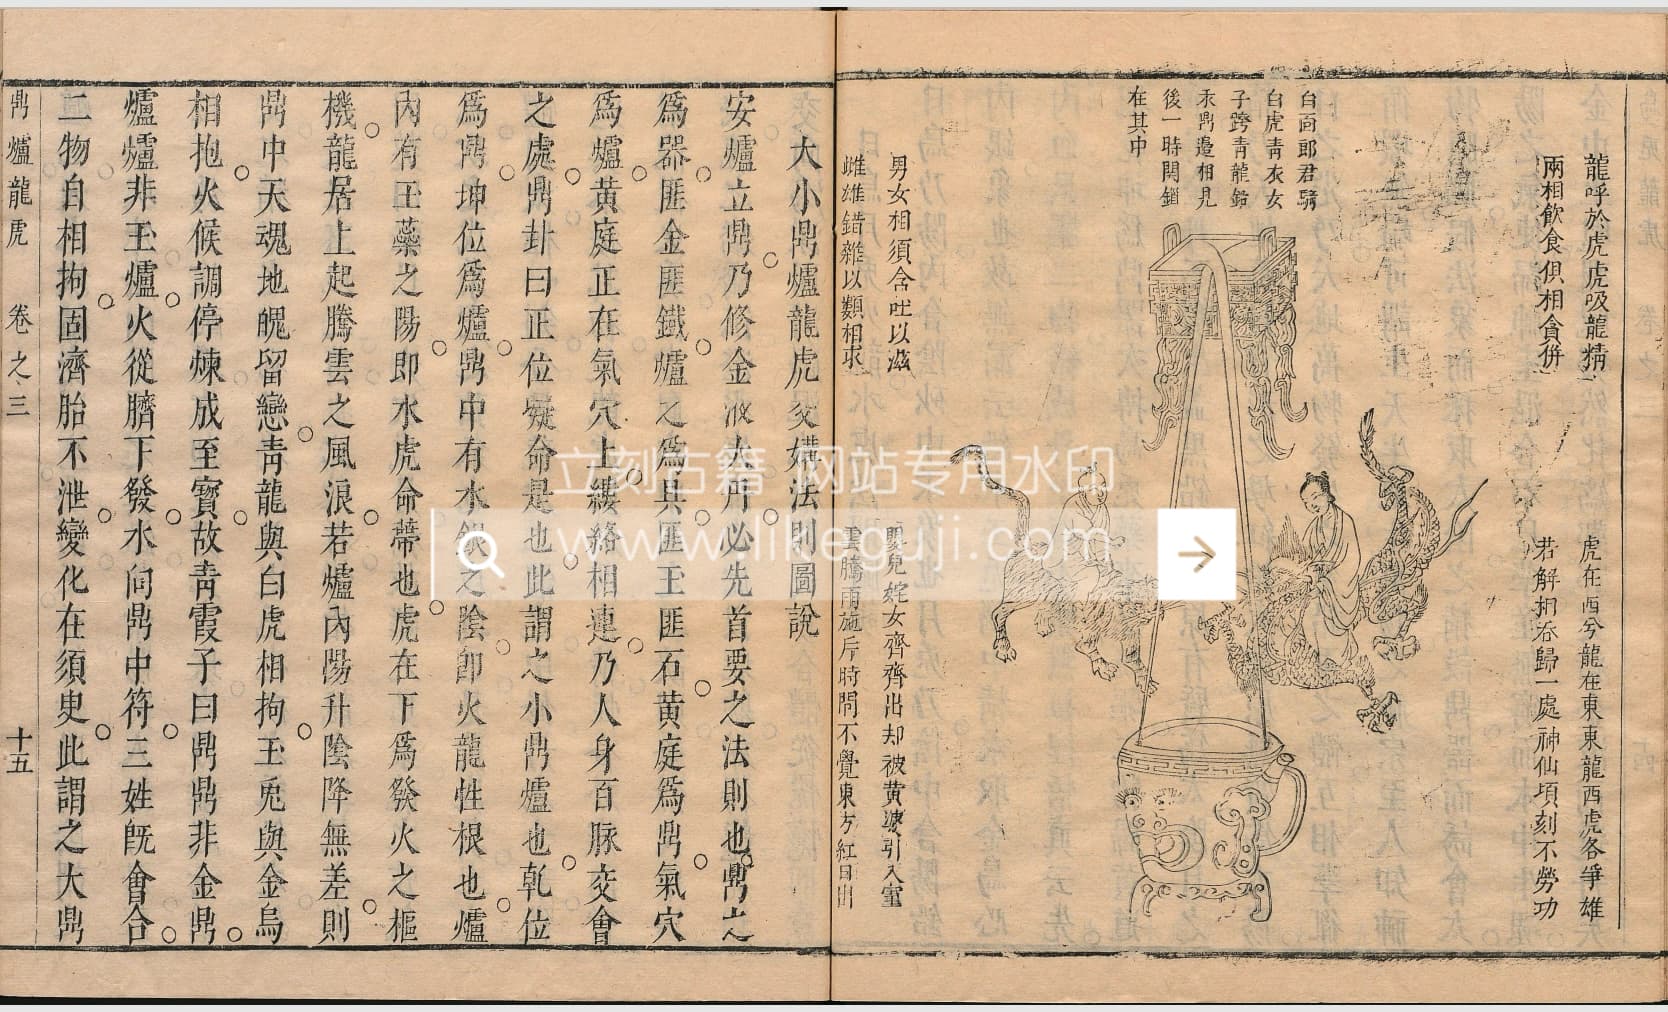 龍呼於虎虎吸龍精
兩相飲食俱相貪併
虎在西兮龍在東東龍西虎各爭雄
若解相吞歸一處神仙頃刻不勞功
白面郎君騎
白虎青衣女
子跨青龍鉛
汞鼎邊相見
後一時関鎖
在其中
男女相須含吐以滋
雌雄錯雜以類相求
嬰兒姹女齊齊出却被黄婆引入室
雲騰雨施片時間不覺東方紅日出
大小鼎爐龍虎交媾法則圖說
安爐立鼎乃修金液大丹必先首要之法則也鼎之
爲器匪金匪鐵爐之爲具匪玉匪石黄庭爲鼎氣穴
爲爐黄庭正在氣穴上縷絡相連乃人身百脉交會
之處鼎卦曰正位凝命是也此謂之小鼎爐也乾位
爲鼎坤位爲爐鼎中有水銀之陰卽火龍性根也爐
內有玉蘂之陽即水虎命蒂也虎在下爲發火之樞
機龍居上起騰雲之風浪若爐內陽升陰降無差則
鼎中天魂地魄留戀青龍與白虎相拘玉兎與金烏
相抱火候調停煉成至寳故青霞子曰鼎鼎非金鼎
爐爐非玉爐火從臍下發水向鼎中符三姓旣會合
二物自相拘固濟胎不泄變化在須臾此謂之大鼎
鼎爐龍虎 卷之三 十五
立刻古籍 网站专用水印
www.likeguji.com